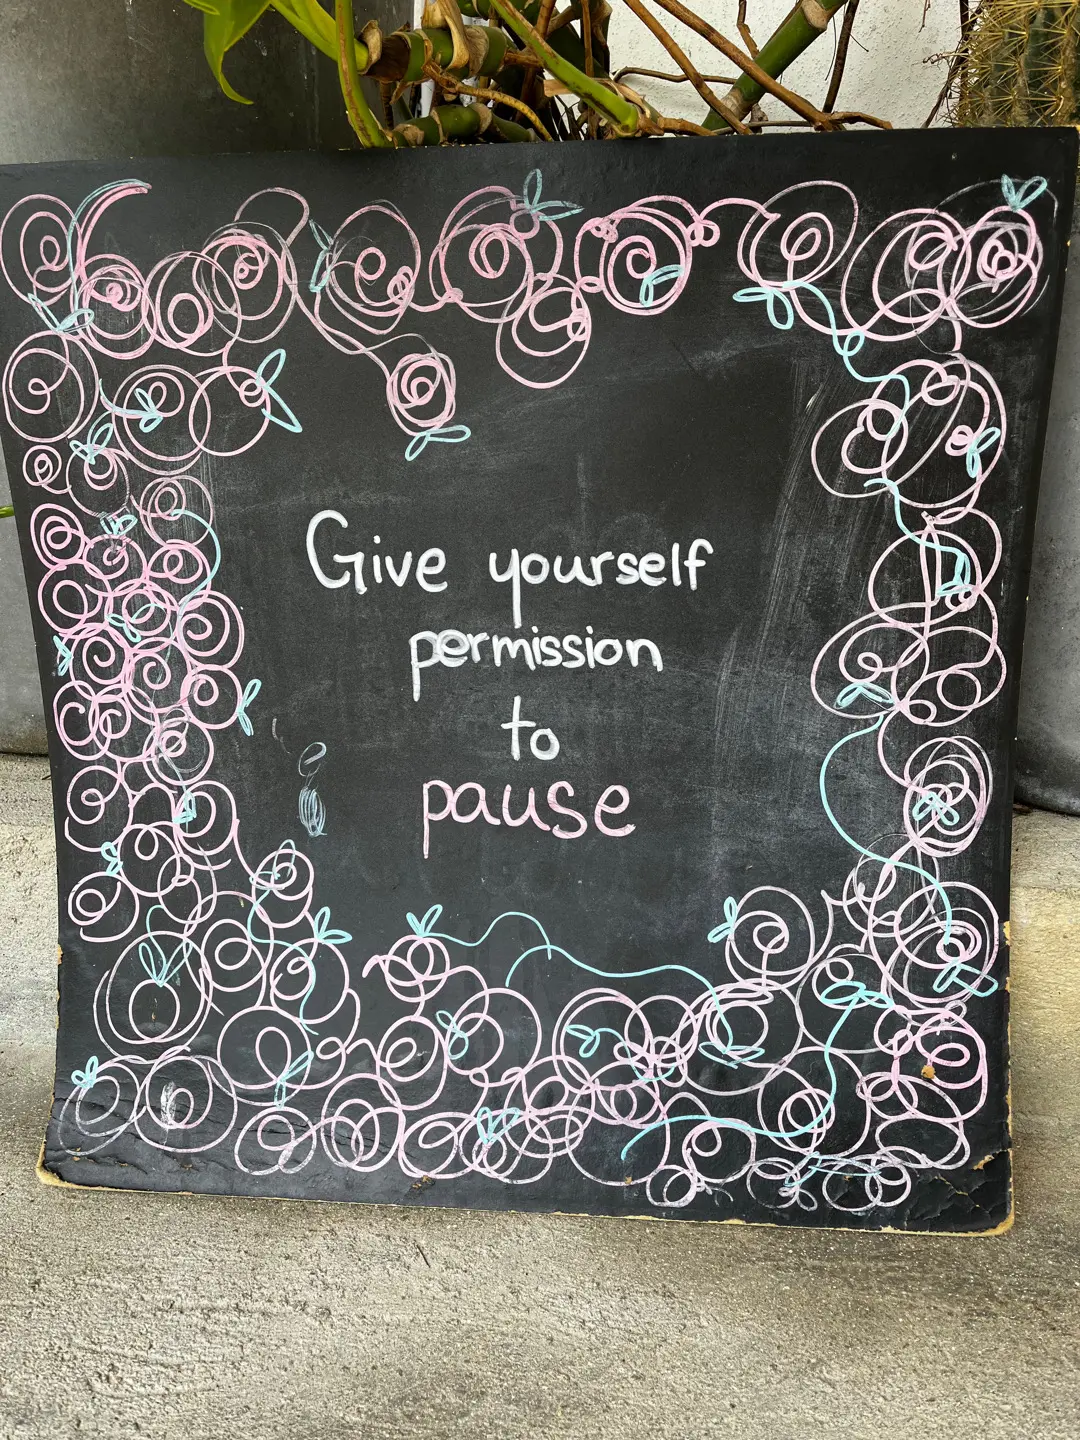 Give yourself
permission
to
pause